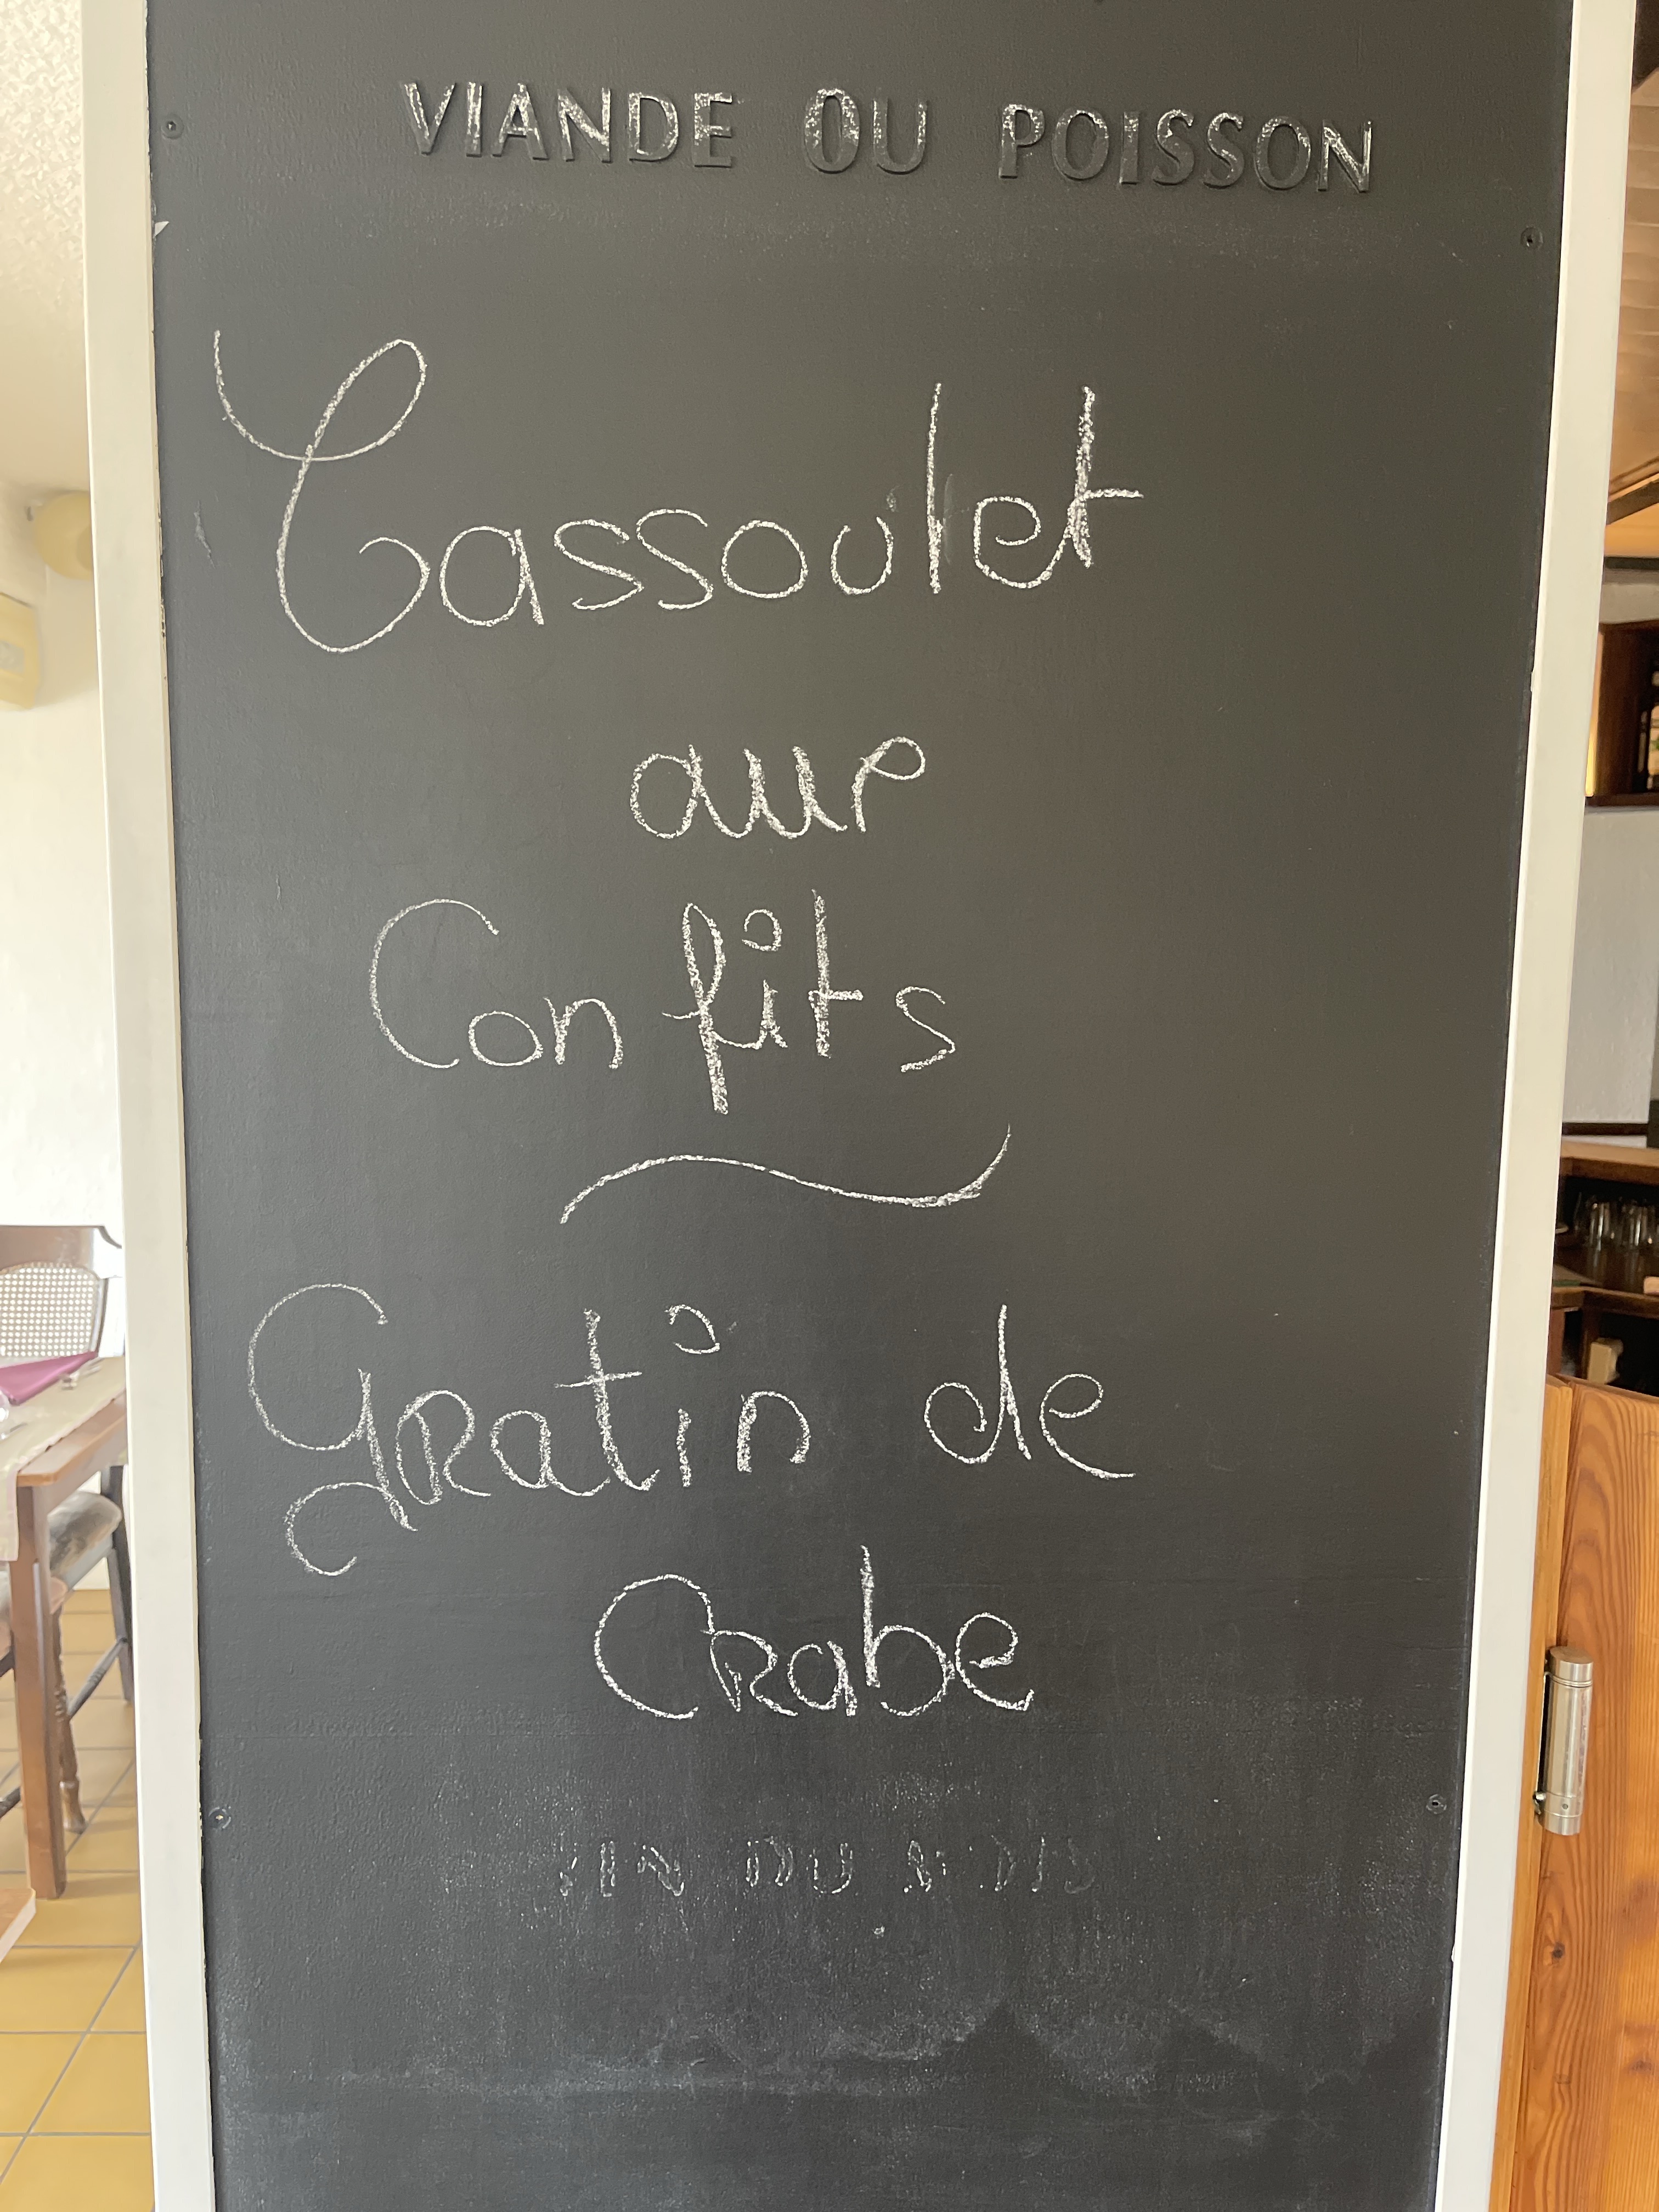 VIANDE OU POISSON
Cassoulet
aux
Confits
Gratin de
Crabe
VIN DU